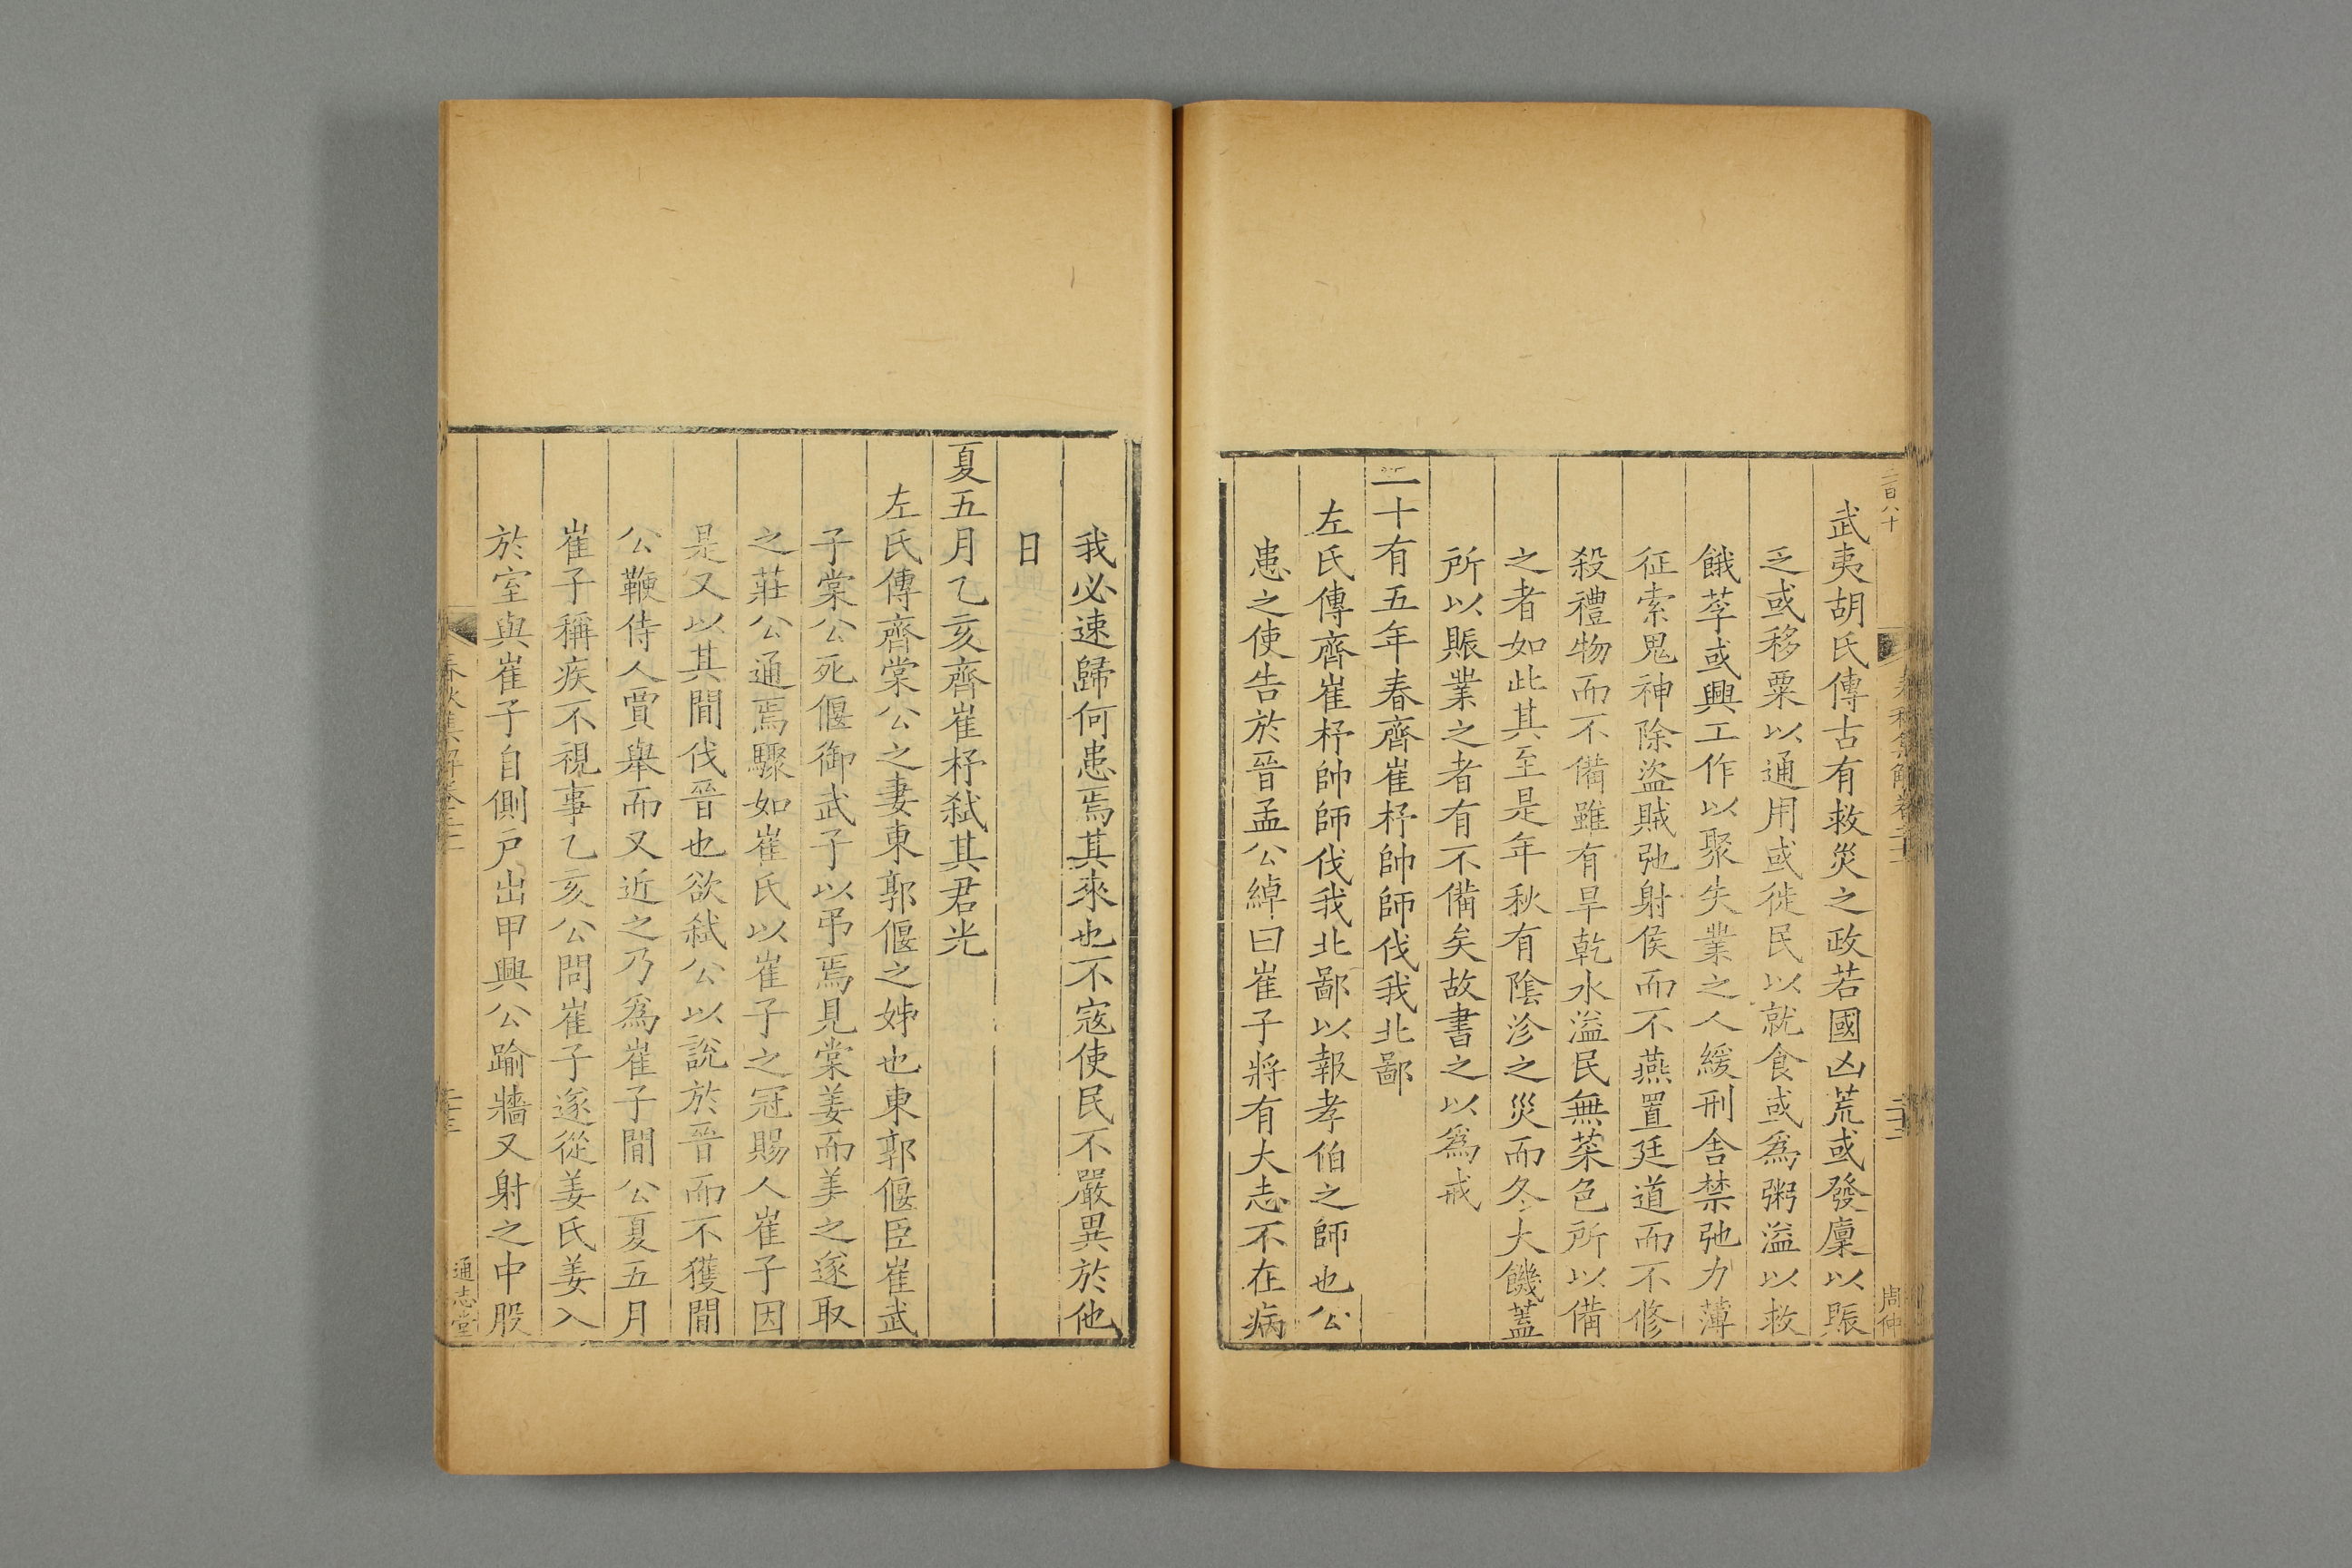 武夷胡氏傳古有救災之政若國凶荒或發廩以賑
乏或移粟以通用或徙民以就食或爲粥溢以救
餓莩或興工作以聚失業之人緩刑舍禁弛力薄
征索鬼神除盜賊弛射侯而不燕置廷道而不修
殺禮物而不備雖有旱乾水溢民無菜色所以備
之者如此其至是年秋有陰沴之災而冬大饑蓋
所以賑業之者有不備矣故書之以爲戒
二十有五年春齊崔杼帥師伐我北鄙
左氏傳齊崔杼帥師伐我北鄙以報孝伯之師也公
患之使告於晉孟公綽曰崔子將有大志不在病
我必速歸何患焉其來也不寇使民不嚴異於他
日
夏五月乙亥齊崔杼弑其君光
左氏傳齊棠公之妻東郭偃之姊也東郭偃臣崔武
子棠公死偃御武子以弔焉見棠姜而美之遂取
之莊公通焉驟如崔氏以崔子之冠賜人崔子因
是又以其間伐晉也欲弑公以說於晉而不獲間
公鞭侍人賈舉而又近之乃爲崔子間公夏五月
崔子稱疾不視事乙亥公問崔子遂從姜氏姜入
於室與崔子自側戶出甲興公踰牆又射之中股
通志堂
周仲